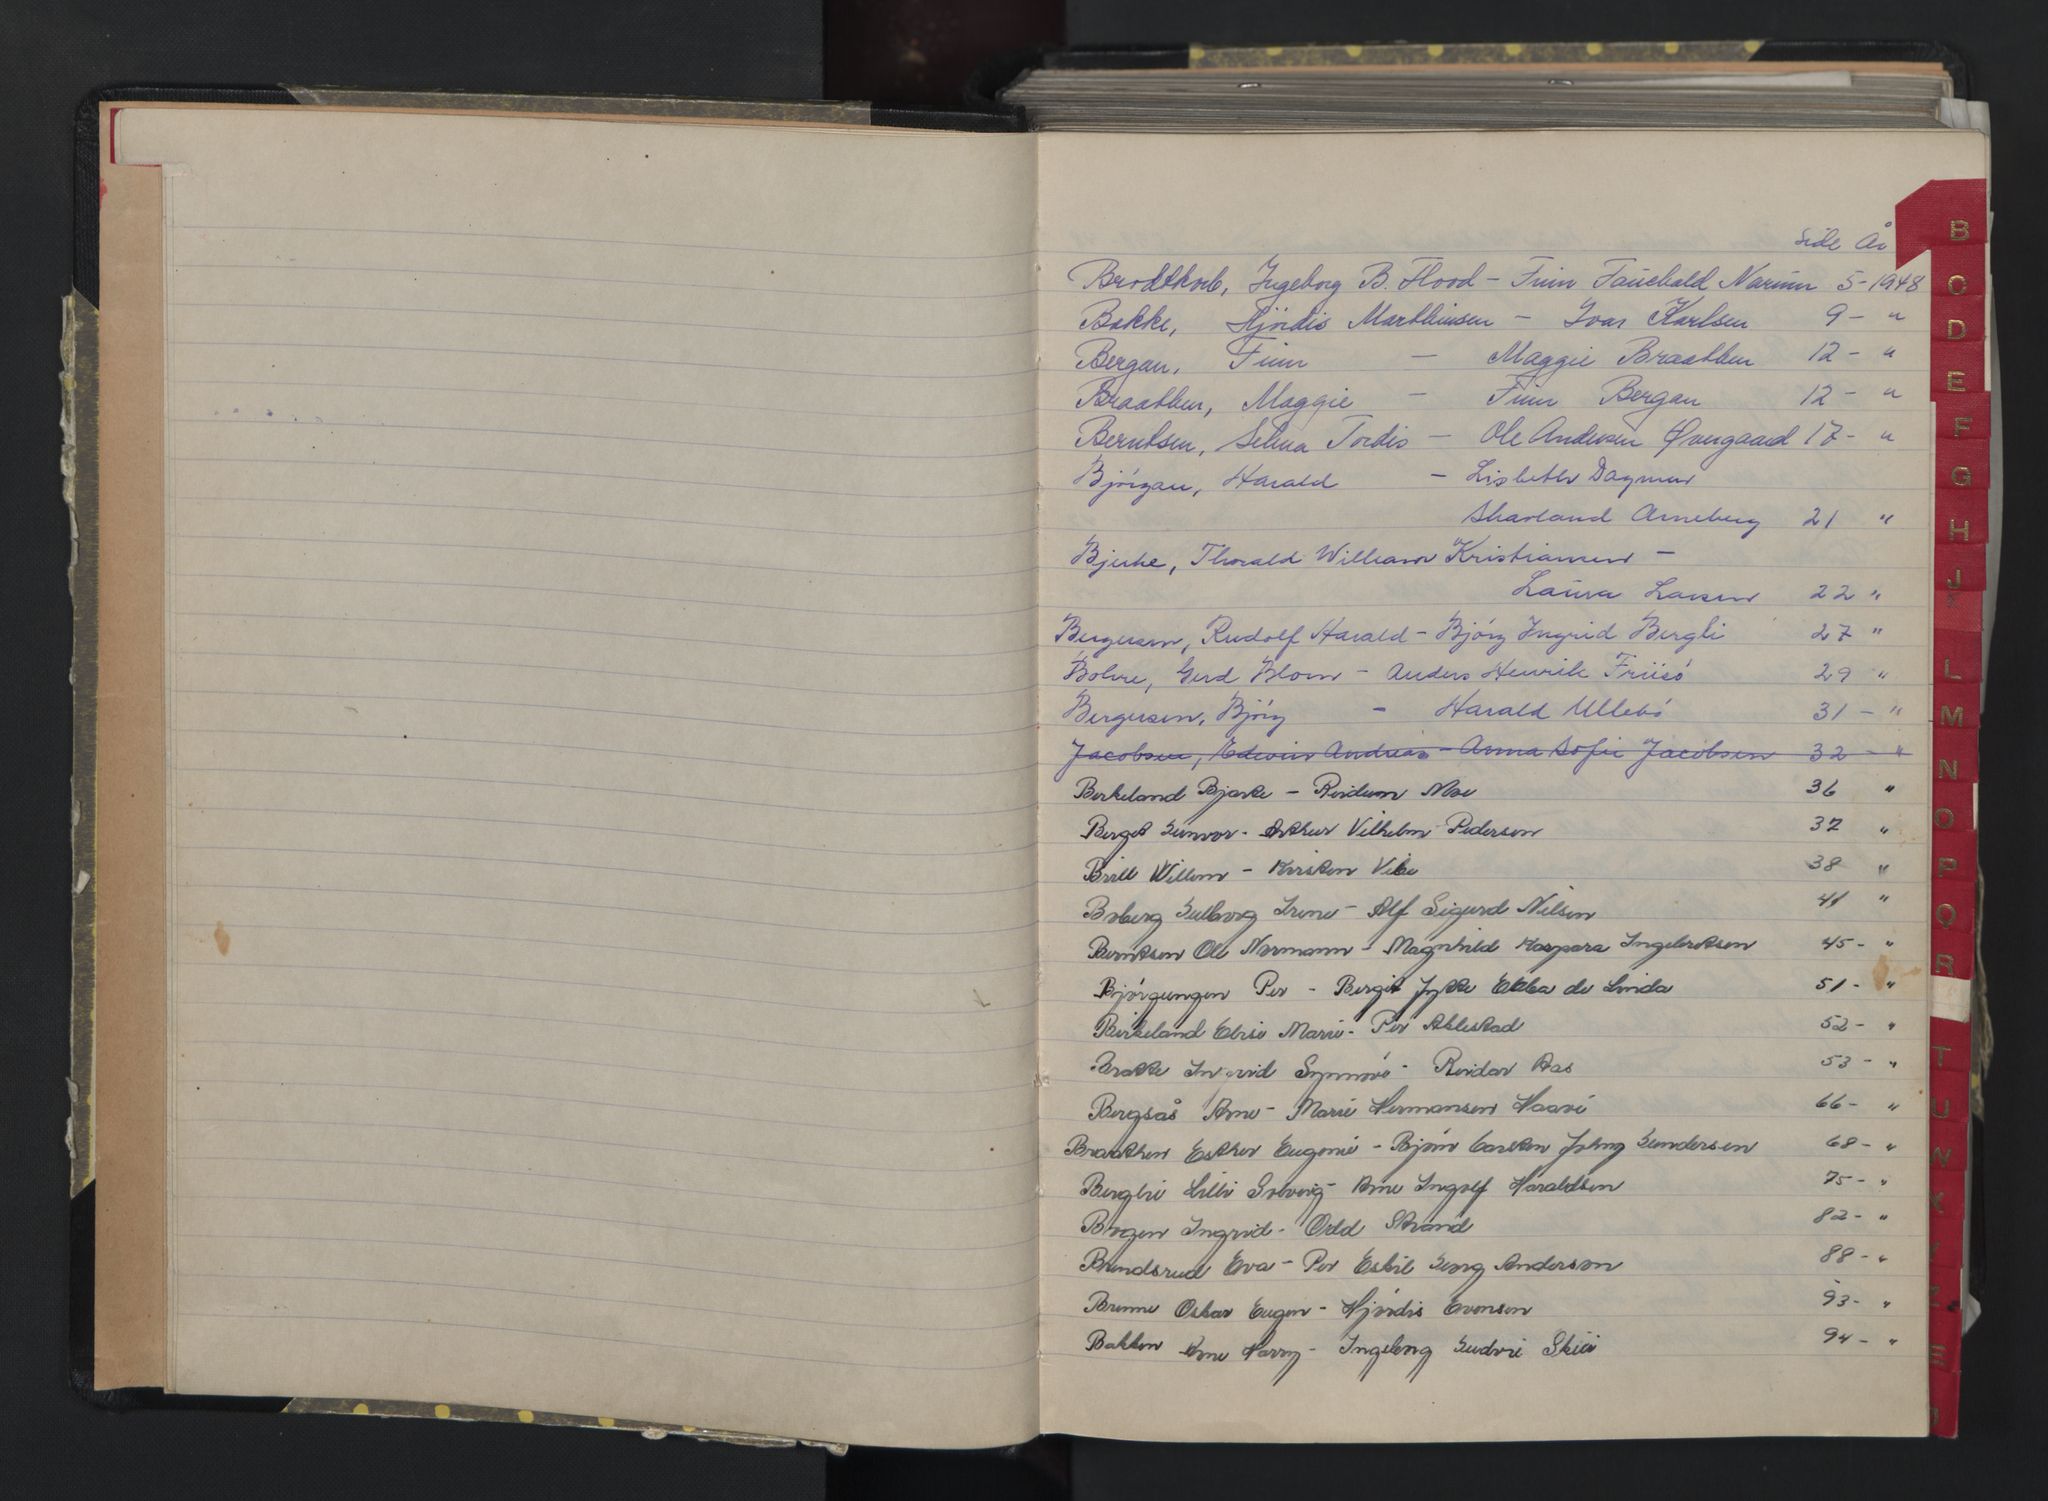 Side År
Brodtkorb, Ingeborg B. Flood - Finn Fauchald Narum 5-1948
Bakke, Hjördis Marthinsen - Ivar Karlsen 9 - "
Bergan, Finn - Maggie Braathen 12 - "
Braathen, Maggie - Finn Bergan 12 - "
Berntsen, Selma Tordis - Ole Andersen Øvergaard 17 - "
Björgan, Harald - Lisbeth Dagmar
Skarland Arneberg 21 "
Bjerke, Thorald William Kristiansen -
Laura Larsen 22 "
Bergersen, Rudolf Harald - Björg Ingrid Bergli 27 "
Bolme, Gerd Blom - Anders Henrik Friisö 29 "
Bergersen, Björg - Harald Ullebö 31 - "
Jacobsen, Edwin Andreas - Anna Sofie Jacobsen 32 - "
Birkeland Bjarke - Reidun Moe 36 "
Berget Gunvor - Arthur Vilhelm Pedersen 37 "
Brill Willem - Kirsten Vibe 38 "
Boberg Gulborg Irene - Alf Sigurd Nilsen 41 "
Berntsen Ole Normann - Magnhild Kaspara Ingebretsen 45 - "
Björgungen Per - Bergit Jykke Ebba de Linda 51 - "
Birkeland Elise Marie - Per Ahlestad 52 - "
Brakke Ingrid Synnöve - Reidar Aas 53 - "
Bergsås Arne - Marie Hermansen Haave 66 - "
Braathen Esther Eugenie - Björn Carsten Johny Gundersen 68 - "
Berglie Lilli Solveig - Arne Ingolf Haraldsen 75 - "
Bogen Ingrid - Odd Strand 82 - "
Brendsrud Eva - Per Eskil Georg Anderson 88 - "
Brenne Oskar Eugen - Hjördis Evensen 93 - "
Bakken Arne Harry - Ingeborg Gudrie Skiei 94 - "
B
C
D
E
F
G
H
J
L
M
N
O
P
Q
R
T
U